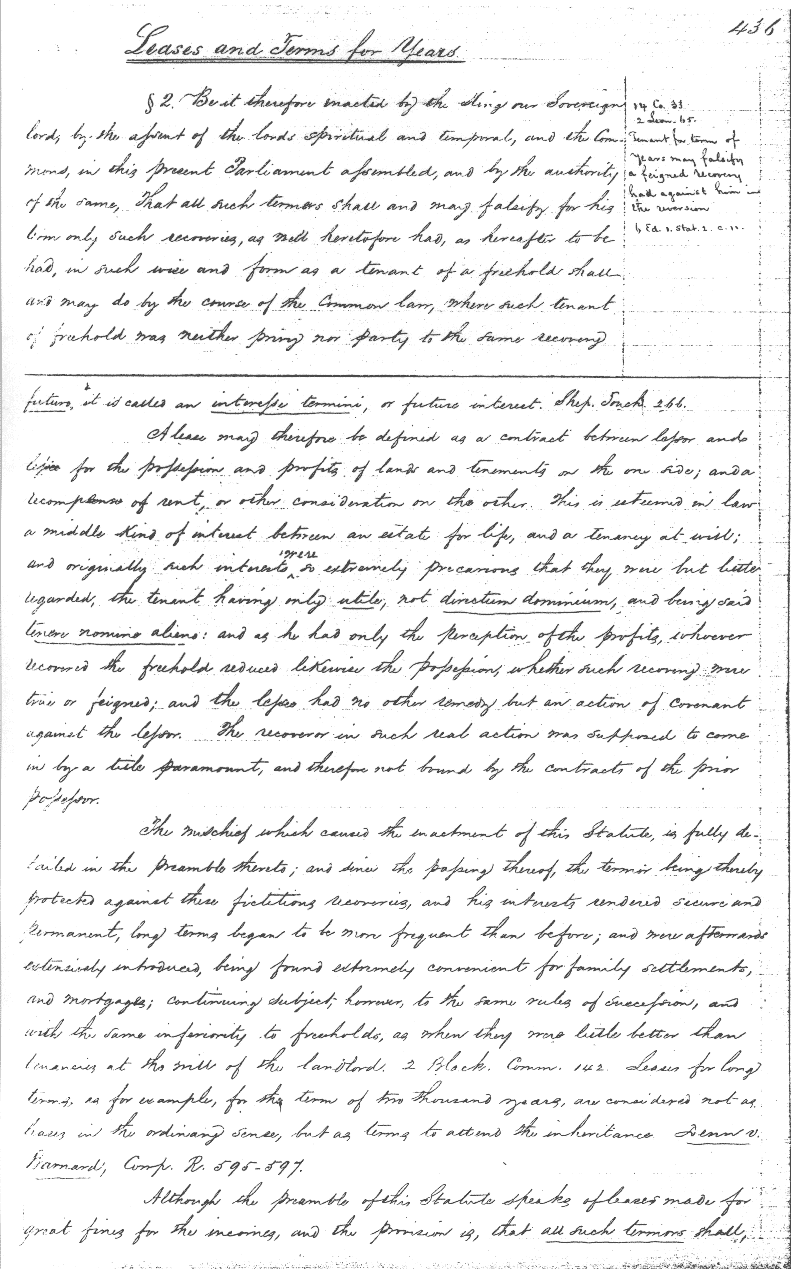 436
Leases and Terms for Years
§ 2. Be it therefore enacted by the King our Sovereign
lord, by the assent of the lords spiritual and temporal, and the Com-
mons, in this present Parliament assembled, and by the authority
of the same, That all such termors shall and may falsify for his
term only such recoveries, as well heretofore had, as hereafter to be
had, in such wise and form as a tenant of a freehold shall
and may do by the course of the Common law, where such tenant
of freehold was neither privy nor party to the same recovery
14 Co. 33
2 Leon. 65.
Tenant for term of
years may falsify
a feigned recovery
had against him in
the reversion
6 Ed. 1. Stat. 1. c. 11.
futuro, it is called an interesse termini, or future interest. Shep. Touch 266.
A lease may therefore be defined as a contract between lessor and
lessee for the possession and profits of lands and tenements on the one side; and a
recompense of rent, or other consideration on the other. This is esteemed in law
a middle kind of interest between an estate for life, and a tenancy at will;
and originally such interests were so extremely precarious that they were but little
regarded, the tenant having only utile, not directum dominium, and being said
tenere nomine alieno: and as he had only the perception of the profits, whoever
recovered the freehold reduced likewise the possession, whether such recovery were
true or feigned; and the lessee had no other remedy but an action of covenant
against the lessor. The recoveror in such real action was supposed to come
in by a title paramount, and therefore not bound by the contracts of the prior
possessor.
The mischief which caused the enactment of this Statute, is fully de-
tailed in the preamble thereto; and since the passing thereof, the termor being thereby
protected against these fictitious recoveries, and his interests rendered secure and
permanent, long terms began to be more frequent than before; and were afterwards
extensively introduced, being found extremely convenient for family settlements,
and mortgages; continuing subject, however, to the same rules of succession, and
with the same inferiority to freeholds, as when they were little better than
tenancies at the will of the landlord. 2 Black. Comm. 142. Leases for long
terms, as for example, for the term of two thousand years, are considered not as
leases in the ordinary sense, but as terms to attend the inheritance Denn v.
Barnard, Cowp. R. 595-597.
Although the preamble of this Statute speaks of leases made for
great fines for the incomes, and the provision is, that all such termors shall,